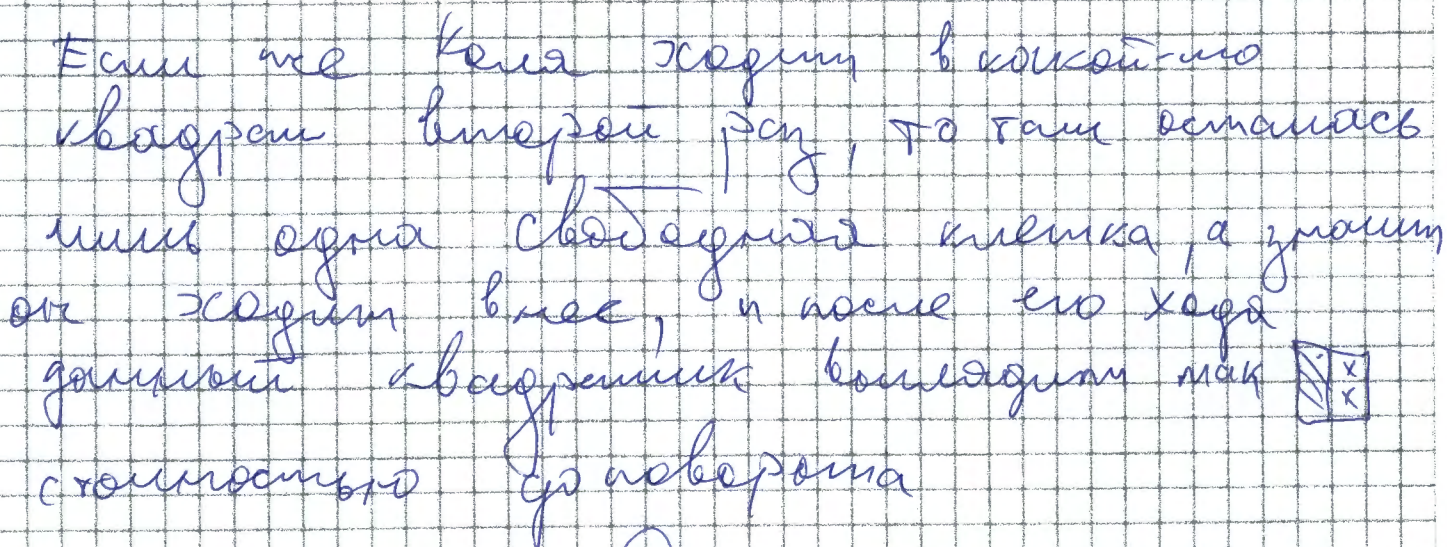 Если же Коля ходит в какой-то
квадрат второй раз, то там осталась
лишь одна свободная клетка, а значит
он ходит в нее, и после его хода
данный квадратик выглядит так x x
с точностью до поворота